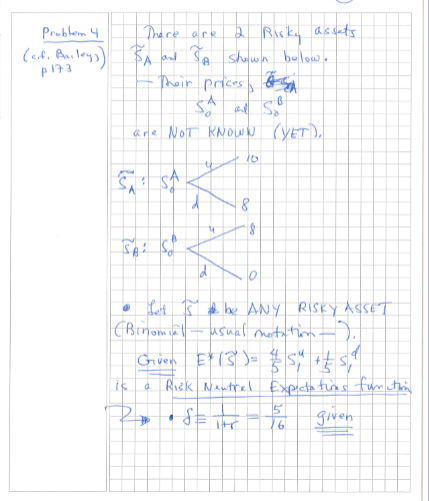 Problem 4
(c.f. Bailey)
p 173
There are 2 Risky assets
S̃_A and S̃_B shown below.
— Their prices,
S₀^A and S₀^B
are NOT KNOWN (YET).
S̃_A : S₀^A u 10
d 8
S̃_B : S₀^B u 8
d 0
• Let S̃ be ANY RISKY ASSET
(Binomial — usual notation —).
Given E*(S̃) = 4/5 S₁^u + 1/5 S₁^d
is a Risk Neutral Expectations function
• δ ≡ 1/(1+r) = 5/16 given